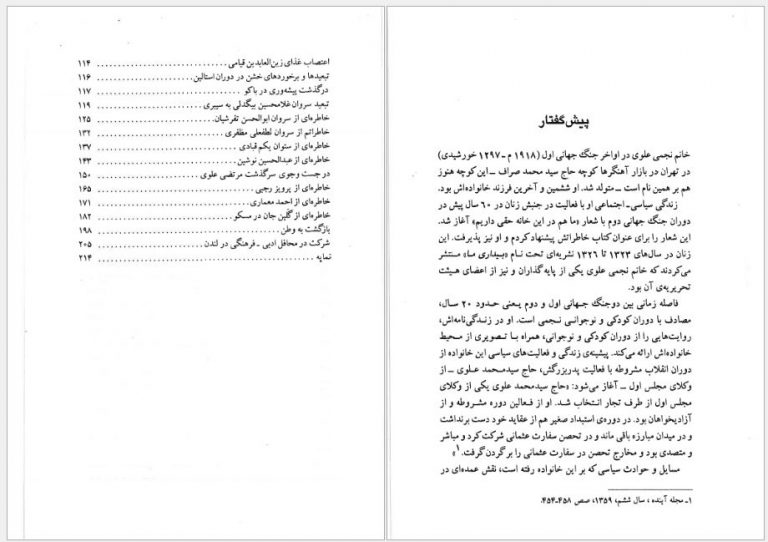 پیش‌گفتار
خانم نجمی علوی در اواخر جنگ جهانی اول (۱۹۱۸ م ـ ۱۲۹۷ خورشیدی)
در تهران در بازار آهنگرها کوچه حاج سید محمد صراف ــ این کوچه هنوز
هم بر همین نام است ــ متولد شد. او ششمین و آخرین فرزند خانواده‌اش بود.
زندگی سیاسی‌ـ اجتماعی او با فعالیت در جنبش زنان در ۶۰ سال پیش در
دوران جنگ جهانی دوم با شعار «ما هم در این خانه حقی داریم» آغاز شد.
این شعار را برای عنوان کتاب خاطراتش پیشنهاد کردم و او نیز پذیرفت. این
زنان در سال‌های ۱۳۲۳ تا ۱۳۲۶ نشریه‌ای تحت نام «بیداری ما» منتشر
می‌کردند که خانم نجمی علوی یکی از پایه‌گذاران و نیز از اعضای هیئت
تحریریه‌ی آن بود.
فاصله زمانی بین دو جنگ جهانی اول و دوم یعنی حدود ۲۰ سال،
مصادف با دوران کودکی و نوجوانی نجمی است. او در زندگی‌نامه‌اش،
روایت‌هایی را از دوران کودکی و نوجوانی، همراه با تصویری از محیط
خانواده‌اش ارائه می‌کند. پیشینه‌ی زندگی و فعالیت‌های سیاسی این خانواده از
دوران انقلاب مشروطه با فعالیت پدربزرگش، حاج سیدمحمد علوی ــ از
وکلای مجلس اول ــ آغاز می‌شود: «حاج سیدمحمد علوی یکی از وکلای
مجلس اول از طرف تجار انتخاب شد. او از فعالین دوره مشروطه و از
آزادیخواهان بود. در دوره‌ی استبداد صغیر هم از عقاید خود دست برنداشت
و در میدان مبارزه باقی ماند و در تحصن سفارت عثمانی شرکت کرد و مباشر
و متصدی بود و مخارج تحصن در سفارت عثمانی را بر گردن گرفت.۱»
مسایل و حوادث سیاسی که بر این خانواده رفته است، نقش عمده‌ای در
۱ـ مجله آینده ، سال ششم، ۱۳۵۹، صص ۴۵۸ـ۴۵۴.
اعتصاب غذای زین‌العابدین قیامی ۱۱۴
تبعیدها و برخوردهای خشن در دوران استالین ۱۱۶
درگذشت پیشه‌وری در باکو ۱۱۷
تبعید سروان غلامحسین بیگدلی به سیبری ۱۱۹
خاطره‌ای از سروان ابوالحسن تفرشیان ۱۲۵
خاطراتم از سروان لطفعلی مظفری ۱۳۲
خاطره‌ای از ستوان یکم قبادی ۱۳۷
خاطره‌ای از عبدالحسین نوشین ۱۴۳
در جست و جوی سرگذشت مرتضی علوی ۱۵۰
خاطره‌ای از پرویز رجبی ۱۶۵
خاطره‌ای از احمد معماری ۱۷۱
خاطره‌ای از گلین جان در مسکو ۱۸۲
بازگشت به وطن ۱۹۸
شرکت در محافل ادبی ـ فرهنگی در لندن ۲۰۵
نمایه ۲۱۴